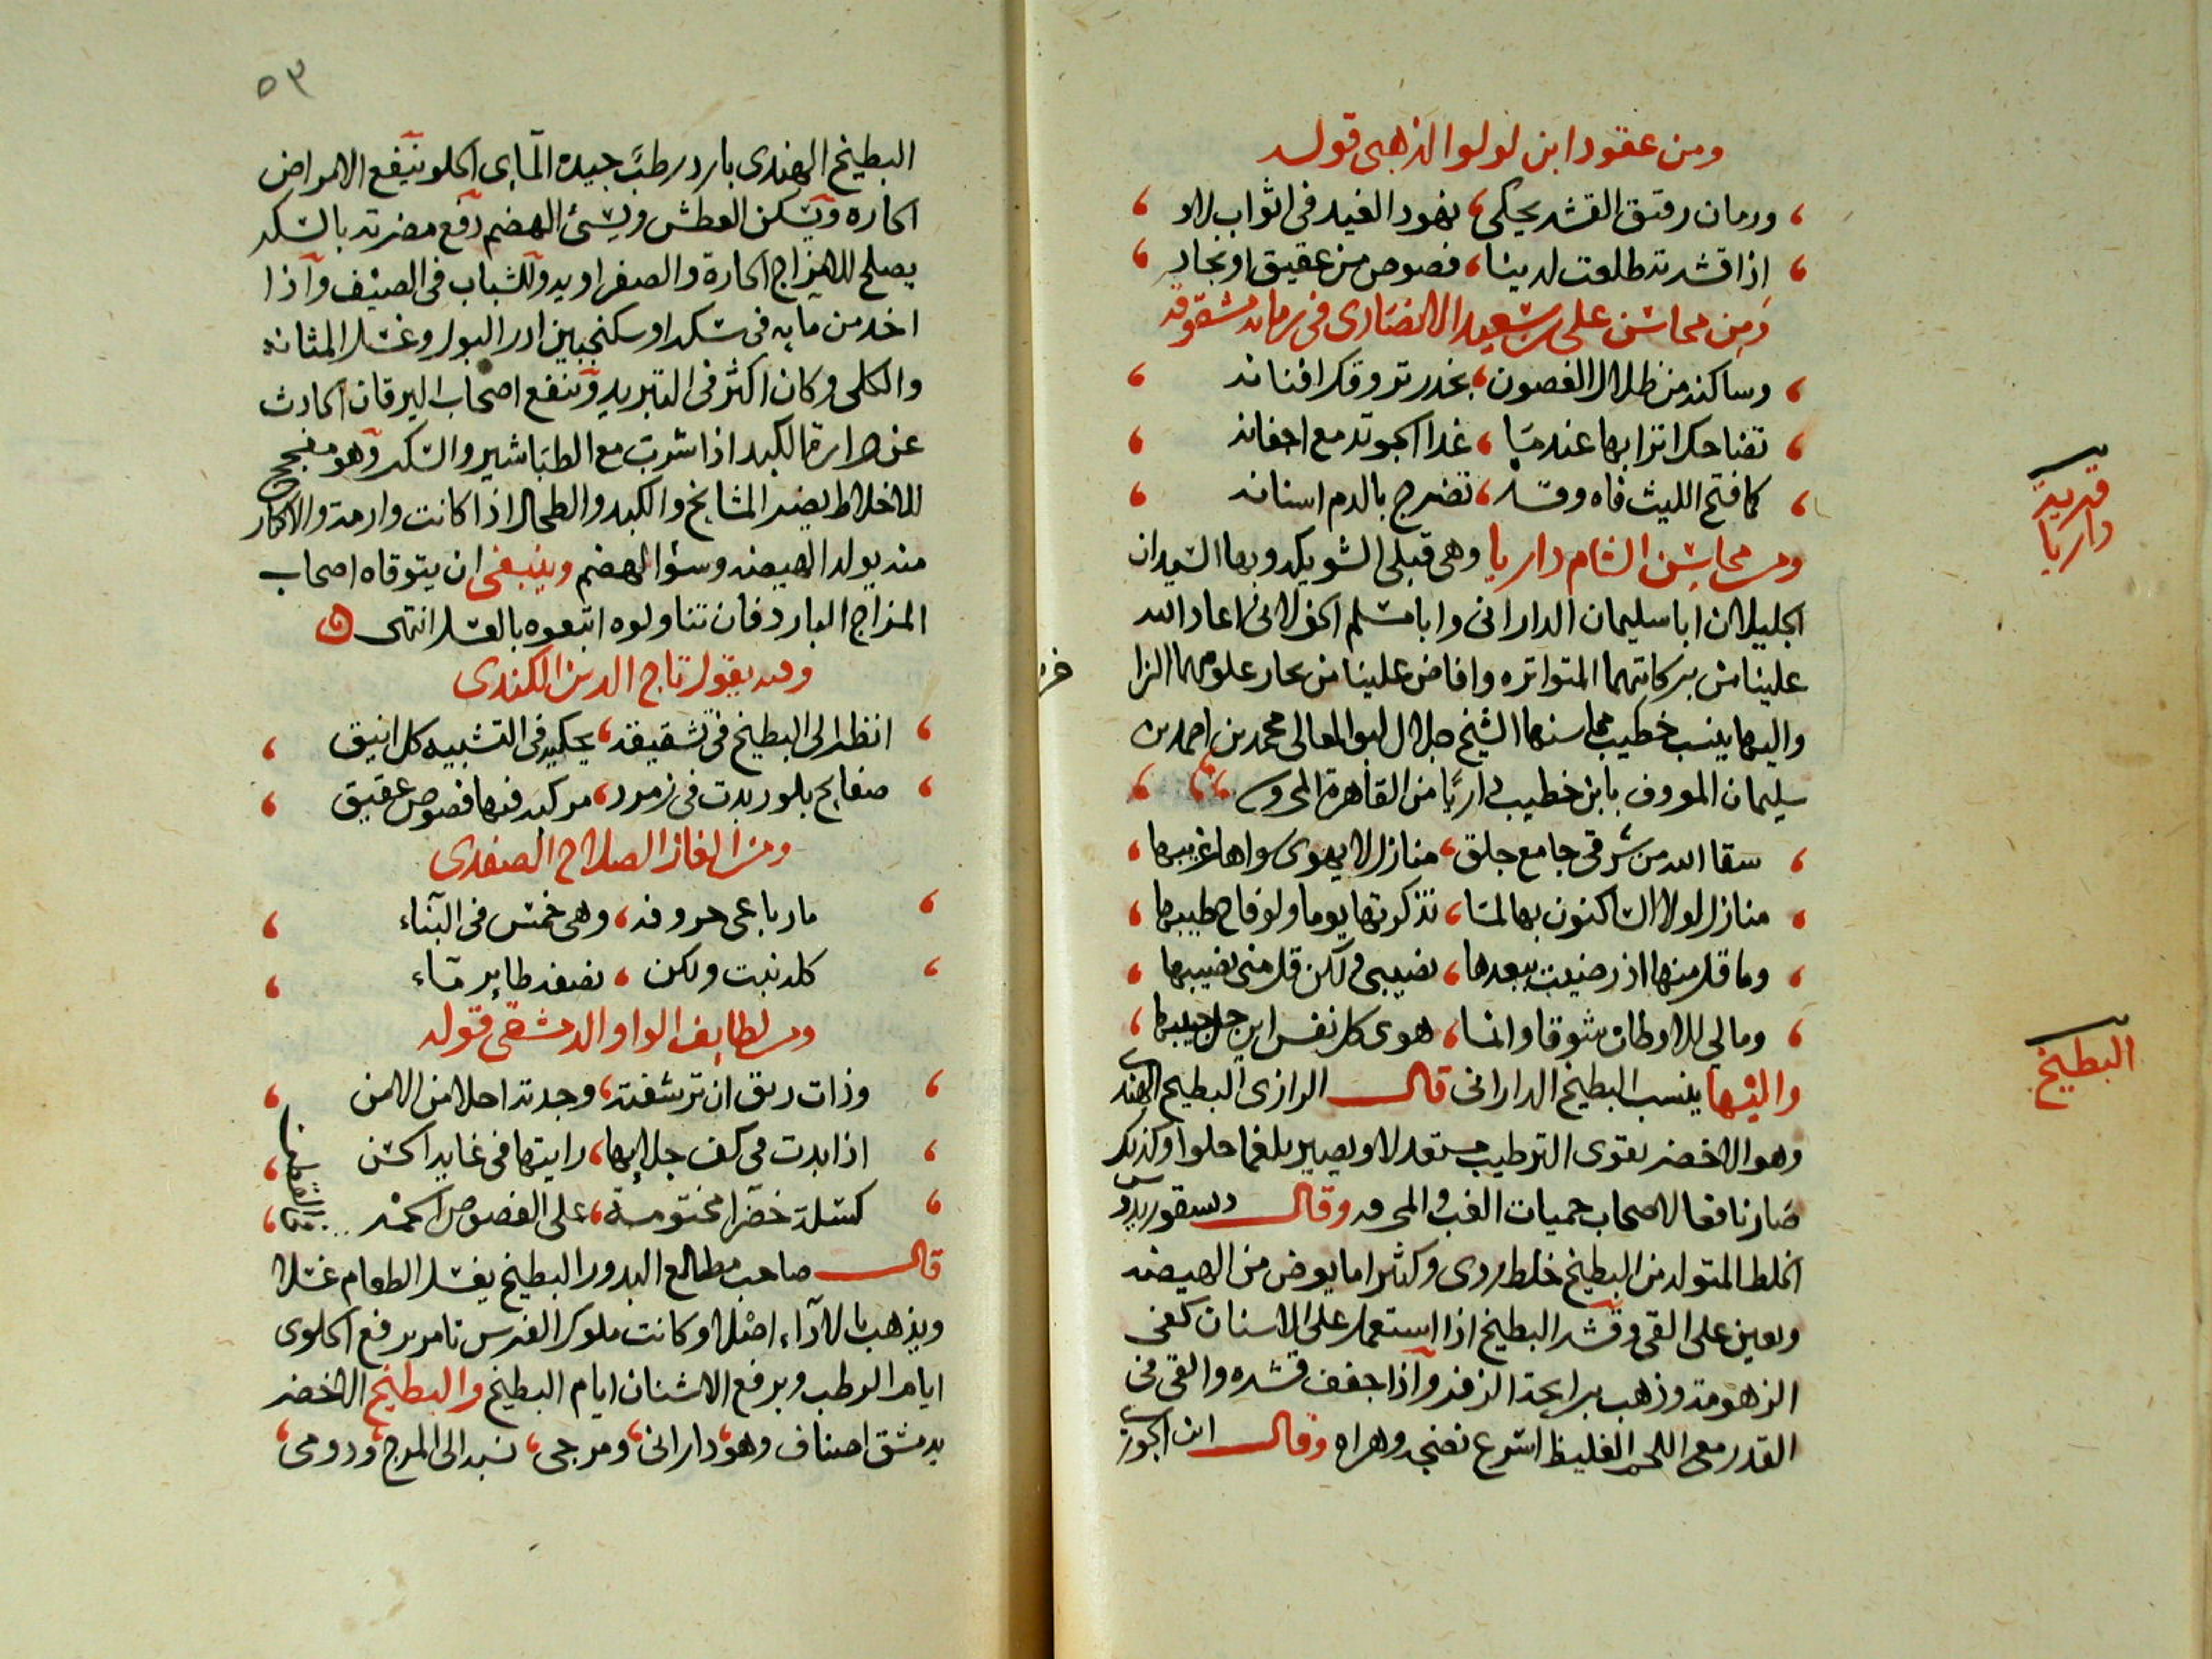 ومن عقود ابن لولوا الذهبى قوله
ورمان رقيق القشر يحكى، نهود الغيد فى اثواب لاد
اذا قشرته طلعت لدينا، فصوص من عقيق او بجاد
ومن محاسن على بن سعيد الانصارى فى رمانه مشقوقه
وساكنه من ظلال الغصون، بخدر تروقك افنانه
تضاحك اترابها عندما، غدا الجو تدمع اجفانه
كما فتح الليث فاه وقد، تضرج بالدم اسنانه
ومن محاسن الشام داريا وهى قبلى الشويكه وبها السيدان
الجليلان ابا سليمان الدارانى وابا مسلم الخولانى اعاد الله
علينا من بركاتهما المتواتره وافاض علينا من بحار علومهما الزا
خره
واليها ينسب خطيب محاسنها الشيخ جلال ابو المعالى محمد بن احمد بن
سليمان المعروف بابن خطيب داريا من القاهرة المحروسه
سقا الله من شرقى جامع جلق، منازل لا يهوى سواها غريبها
منازل لولا الساكنون بها لما، تذكرتها يوما ولو فاح طيبها
وما قل منها اذ رضيت ببعدها، نصيبى ولكن قل منى نصيبها
ومالي للاوطان شوقا وانما، هوى كل نفس اين حل حبيبها
واليها ينسب البطيخ الدارانى قال الرازى البطيخ الهندى
وهو الاخضر يقوى الترطيب مستعدلا ويصير بلغما حلوا وكذلك
صار نافعا لاصحاب حميات الغب والمحرقه وقال دسقوريدوس
الخلط المتولد من البطيخ خلط ردى وكثيرا ما يعرض من الهيضه
ويعين على القى وقشر البطيخ اذا استعمل على الاسنان كفى
الزهومة وذهب برايحة الزفر واذا جفف قشره والقى فى
القدر مع اللحم الغليظ اسرع نضجه وهراه وقال ابن الجوزى
قرية
داريا
البطيخ
٥٣
البطيخ الهندى بارد رطب جيده المآيى الحلو ينفع الامراض
الحاره ويسكن العطش ويسئ الهضم دفع مضرته بالسكر
يصلح للامزاج الحارة والصفراويه وللشباب فى الصيف واذا
اخذ من مايه فى سكر او سكنجبين ادر البول وغسل المثانه
والكلى وكان اكثر فى التبريد وينفع اصحاب اليرقان الحادث
عن حرارة الكبد اذا شرب مع الطباشير والسكر وهو مفجج
للاخلاط يضر المشايخ والكبد والطحال اذا كانت وارمة والاكثار
منه يولد الهيضه وسؤ الهضم وينبغى ان يتوقاه اصحاب
المزاج البارد فان تناولوه اتبعوه بالعسل انتهى
وفيه يقول تاج الدين الكندى
انظر الى البطيخ فى تشقيقه، يحكيه فى التشبيه كل انيق
صفايح بلور بدت فى زمرد، مركبه فيها فصوص عقيق
ومن الغاز الصلاح الصفدى
ما رباعى حروفه، وهى خمس فى البناء
كله نبت ولكن، نصفه طاير ماء
ومن لطايف الواوا الدمشقى قوله
وذات ريق ان ترشفته، وجدته احلا من الامن
اذا بدت فى كف جلابها، رايتها فى غاية الحسن
كسلة خضرا مختومة، على الفصوص الحمر فى القطن
قال صاحب مطالع البدور البطيخ يغسل الطعام غسلا
ويذهب بالاذآء اصلا وكانت ملوك الفرس تامر برفع الحلوى
ايام الرطب وبرفع الاشنان ايام البطيخ والبطيخ الاخضر
بدمشق اصناف وهو، دارانى، ومرجى، نسبه الى المرج، ودومى،